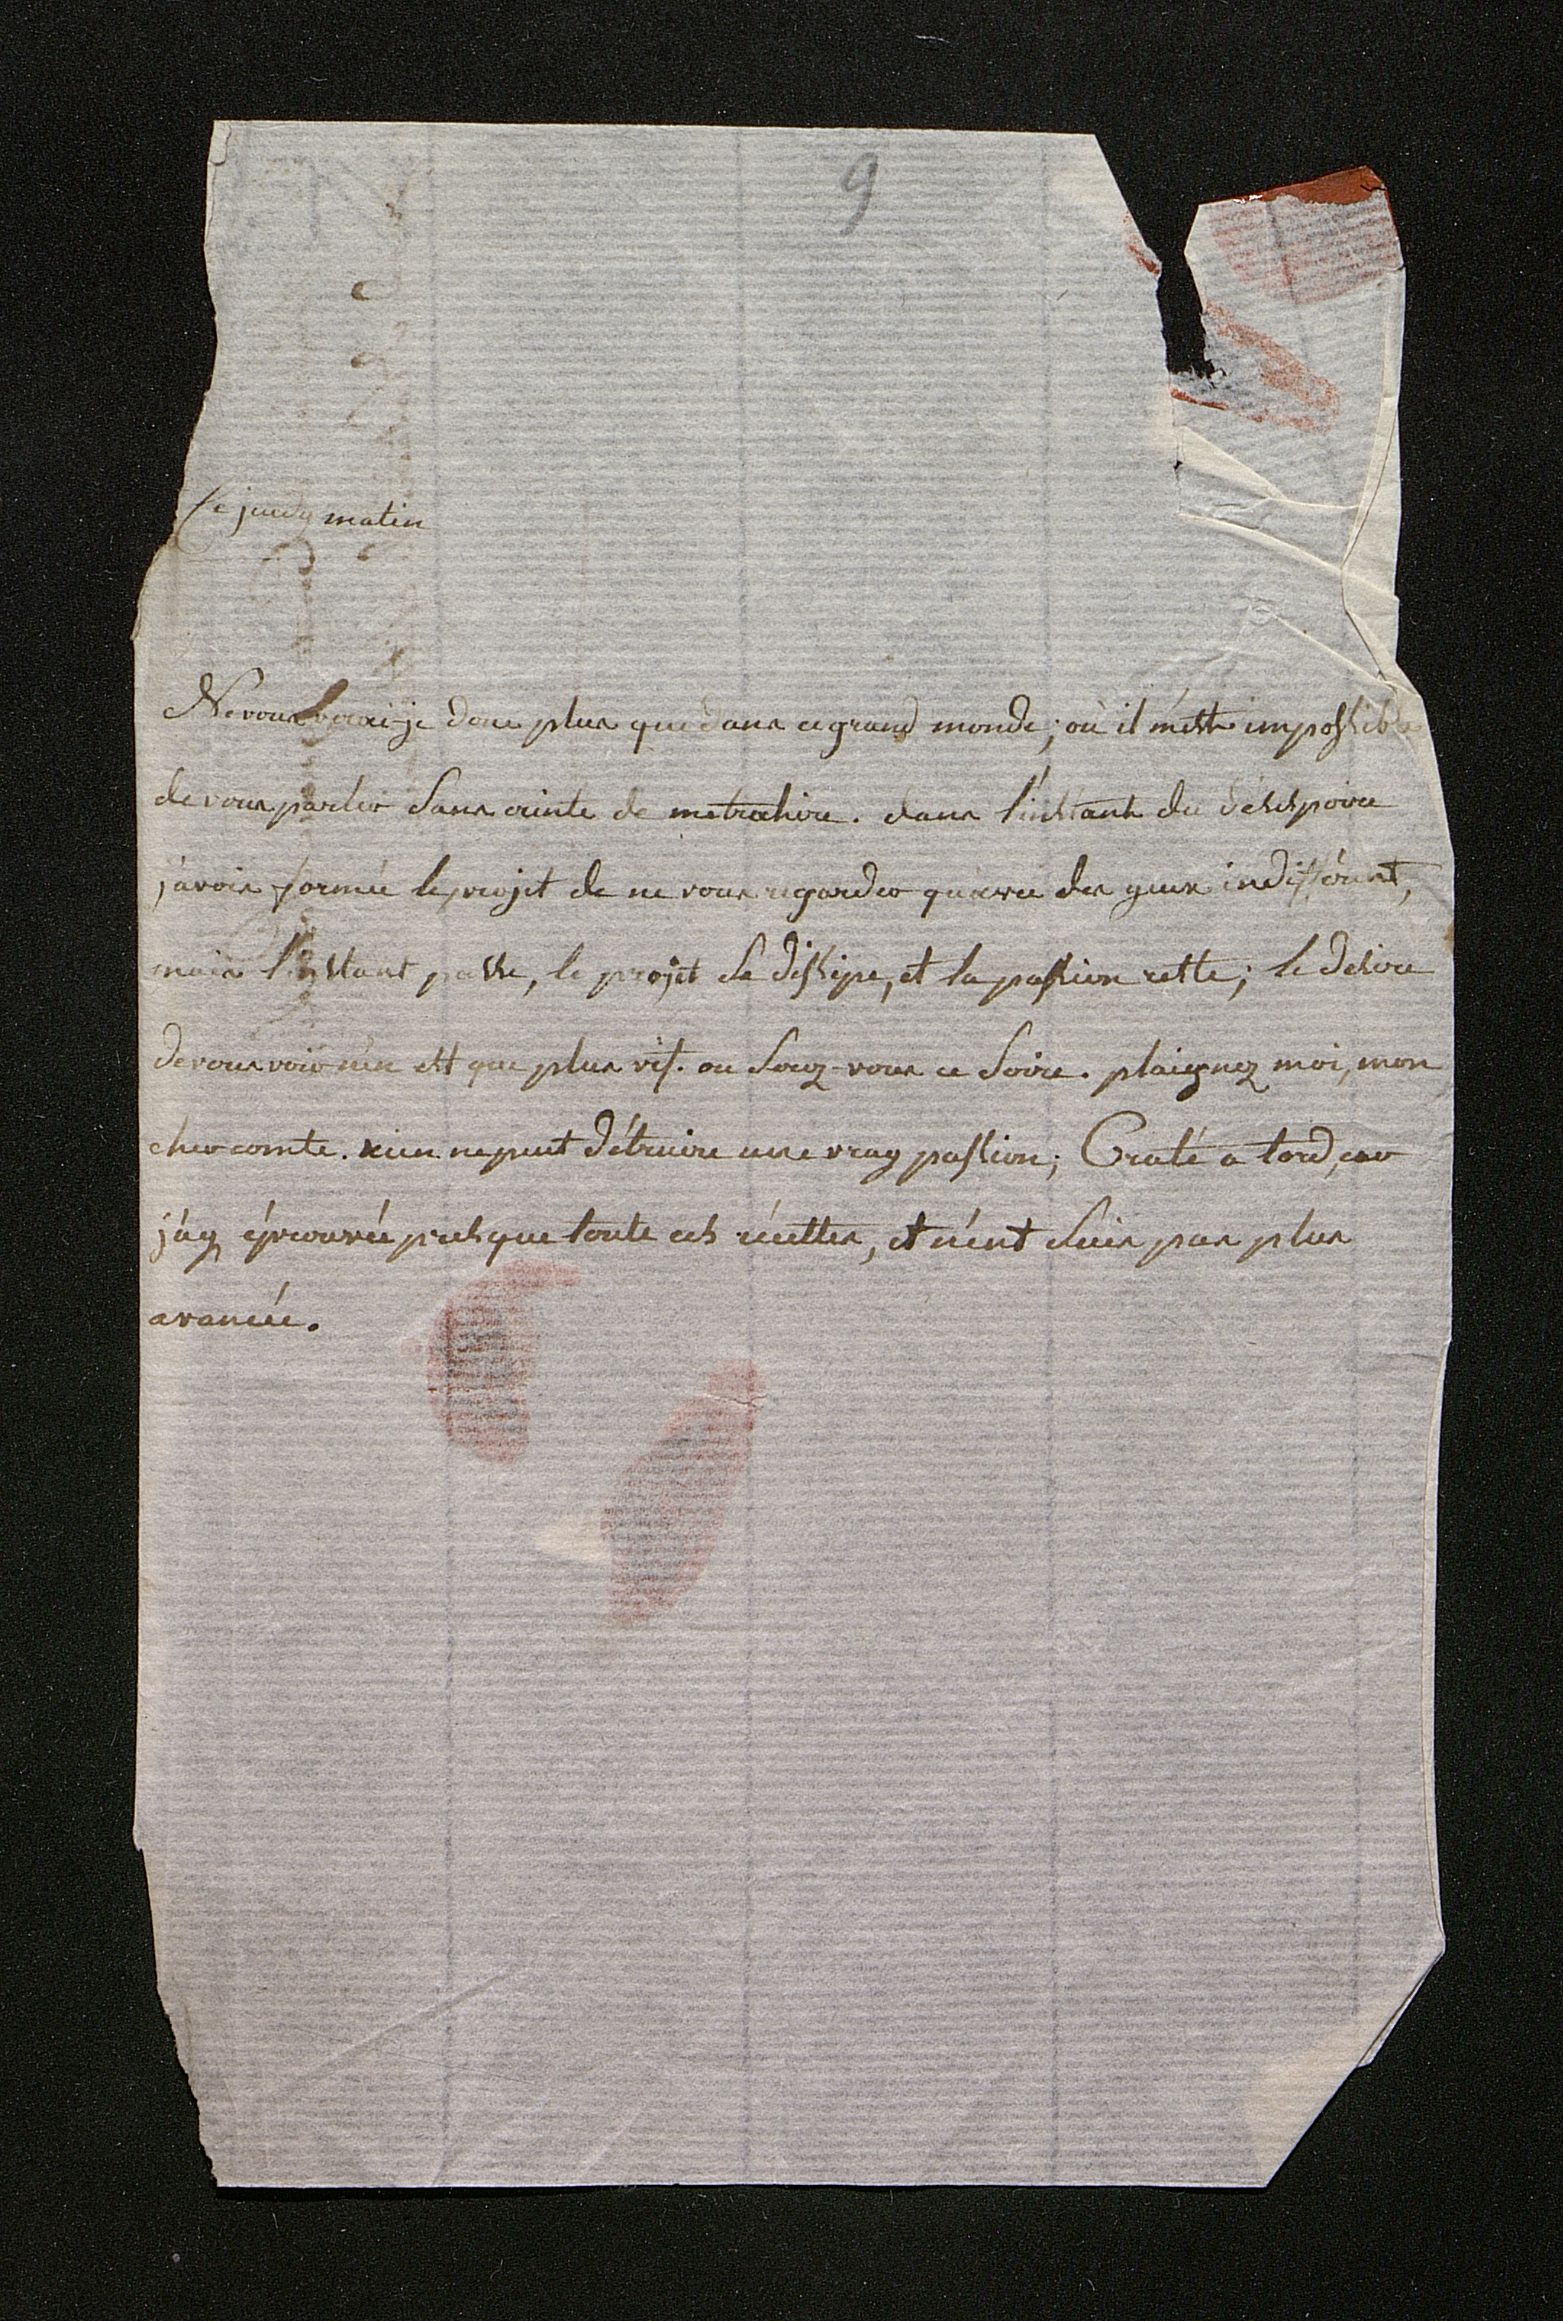 9
Ce jeudy matin
Ne vous verai-je donc plus que dans ce grand monde; où il m'est impossible
de vous parler sans crinte de metrahire. dans l'instant du désespoire
j'avois formée le projet de ne vous regarder qu'avec des yeux indifférent,
mais l'instant passe, le projet se dissipe, et la passion reste; le desire
de vous voir n'en est que plus vif. ou serez-vous ce soire. plaignez moi, mon
cher comte. rien ne peut détruire une vray passion; Craté a tord, car
j'ay éprouvée presque toute ces récettes, et n'ent suis pas plus
avancée.